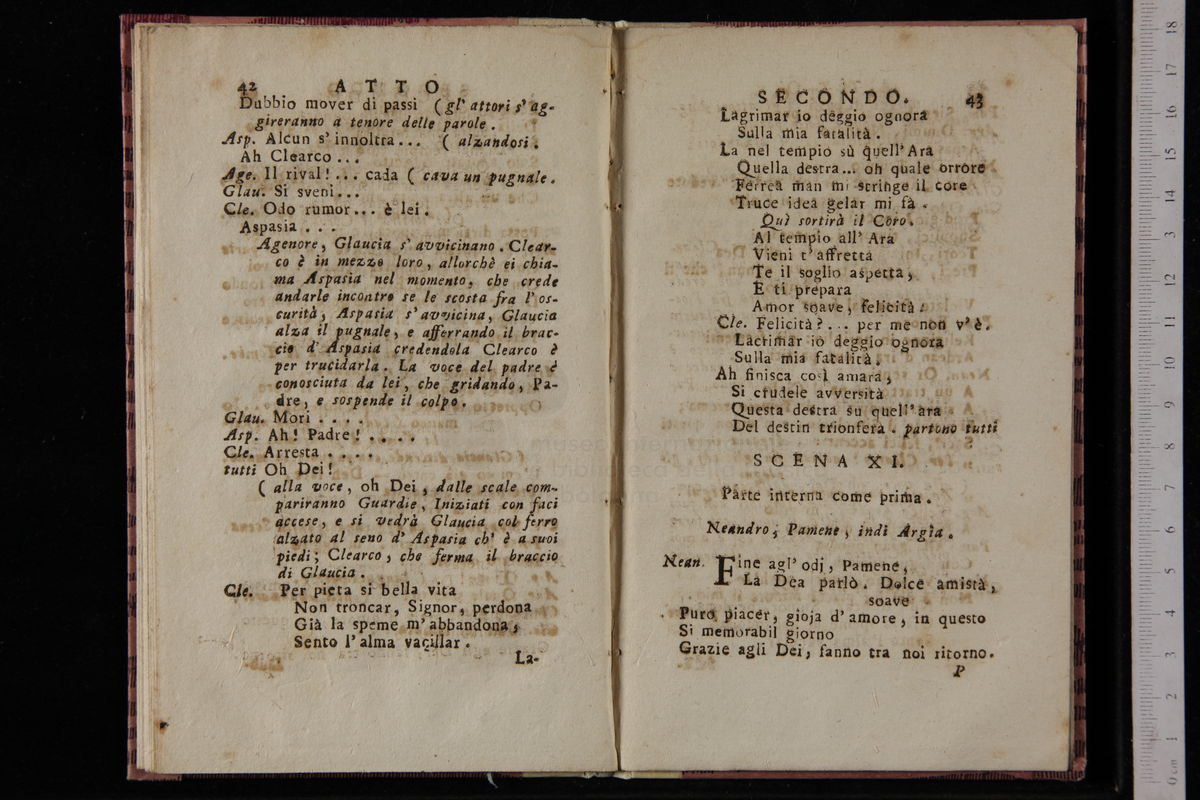 42 ATTO
Dubbio mover di passi (gl' attori s' ag-
gireranno a tenore delle parole.
Asp. Alcun s' innoltra... (alzandosi.
Ah Clearco...
Age. Il rival!... cada (cava un pugnale.
Glau. Si sveni...
Cle. Odo rumor... è lei.
Aspasia...
Agenore, Glaucia s' avvicinano. Clear-
co è in mezzo loro, allorchè ei chia-
ma Aspasia nel momento, che crede
andarle incontro se le scosta fra l' os-
curità, Aspasia s' avvicina, Glaucia
alza il pugnale, e afferrando il brac-
cio d' Aspasia credendola Clearco è
per trucidarla. La voce del padre è
conosciuta da lei, che gridando, Pa-
dre, e sospende il colpo.
Glau. Mori....
Asp. Ah! Padre!....
Cle. Arresta....
tutti Oh Dei!
(alla voce, oh Dei, dalle scale com-
pariranno Guardie, Iniziati con faci
accese, e si vedrà Glaucia col ferro
alzato al seno d' Aspasia ch' è a suoi
piedi; Clearco, che ferma il braccio
di Glaucia.
Cle. Per pieta si bella vita
Non troncar, Signor, perdona
Già la speme m' abbandona,
Sento l' alma vacillar.
La-
SECONDO. 43
Lagrimar io deggio ognora
Sulla mia fatalità.
La nel tempio sù quell' Ara
Quella destra... oh quale orrore
Ferrea man mi stringe il core
Truce idea gelar mi fà.
Quì sortirà il Coro.
Al tempio all' Ara
Vieni t' affretta
Te il soglio aspetta,
E ti prepara
Amor soave, felicità.
Cle. Felicità?... per me non v' è.
Lacrimar io deggio ognora
Sulla mia fatalità.
Ah finisca così amara,
Si crudele avversità
Questa destra su quell' ara
Del destin trionfera. partono tutti
SCENA XI.
Parte interna come prima.
Neandro, Pamene, indi Argìa.
Nean. Fine agl' odj, Pamene,
La Dea parlò. Dolce amistà,
soave
Puro piacer, gioja d' amore, in questo
Si memorabil giorno
Grazie agli Dei, fanno tra noi ritorno.
P
0 cm 1 2 3 4 5 6 7 8 9 10 11 12 13 14 15 16 17 18